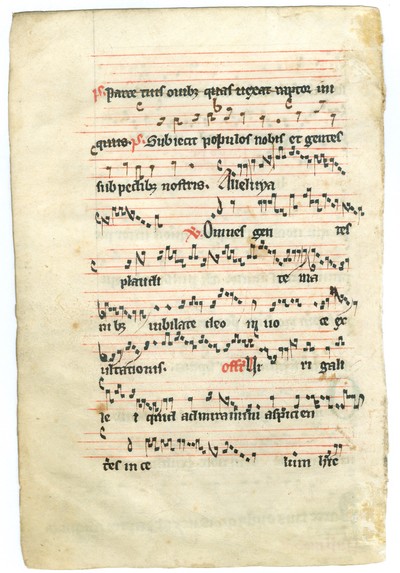 ps. Parce tuis ovibꝫ quas vexat raptor ini
quus. ps. Subiecit populos nobis et gentes
sub pedibꝫ nostris. Alleluya
V. Omnes gen tes
plaudi te ma
nibꝫ iubilate deo in uo ce ex
ultationis. off Vi ri gali
le i quid admiramini aspicien
tes in ce lum